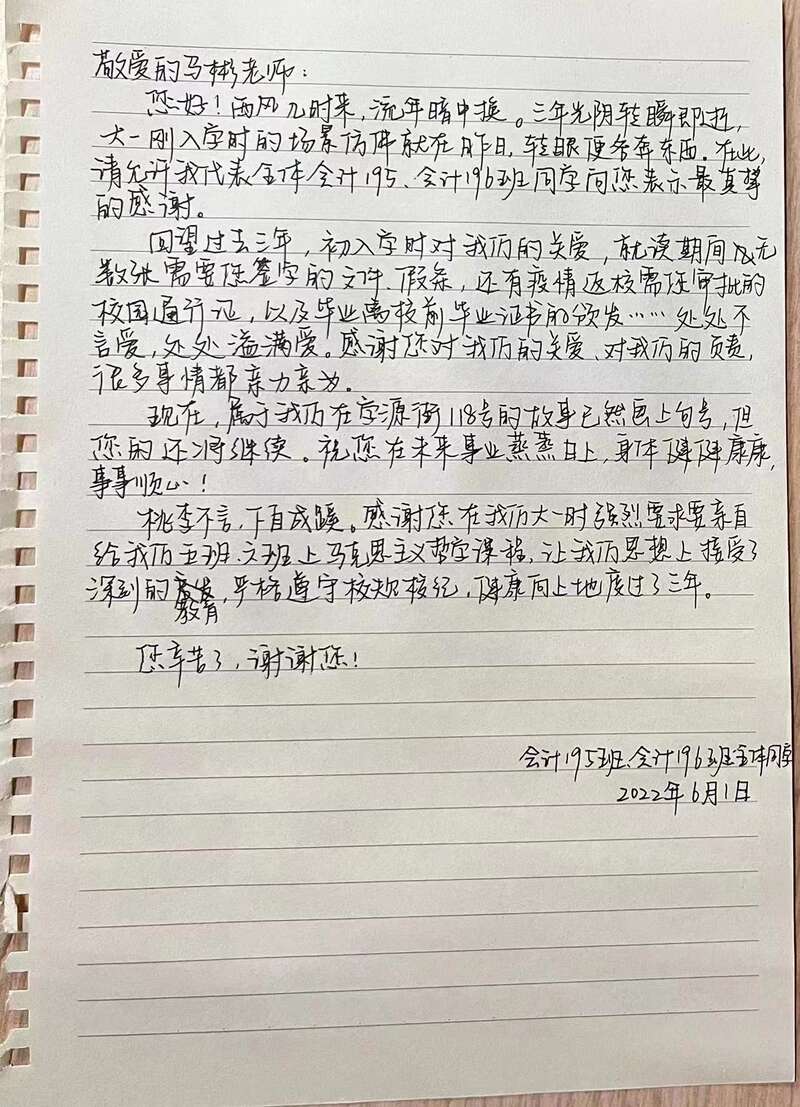 敬爱的马彬老师：
您好！西风几时来，流年暗中换。三年光阴转瞬即逝，
大一刚入学时的场景仿佛就在昨日，转眼便各奔东西。在此，
请允许我代表全体会计195、会计196班同学向您表示最真挚
的感谢。
回望过去三年，初入学时对我们的关爱，就读期间无
数张需要您签字的文件、假条，还有疫情返校需您审批的
校园通行证，以及毕业离校前毕业证书的颁发……处处不
言爱，处处溢满爱。感谢您对我们的关爱、对我们的负责，
很多事情都亲力亲为。
现在，属于我们在学源街118号的故事已然画上句号，但
您的还将继续。祝您在未来事业蒸蒸日上，身体健健康康，
事事顺心！
桃李不言，下自成蹊。感谢您在我们大一时强烈要求要亲自
给我们五班、六班上马克思主义哲学课程，让我们思想上接受了
深刻的教育，严格遵守校规校纪，健康向上地度过了三年。
您辛苦了，谢谢您！
会计195班、会计196班全体同学
2022年6月1日